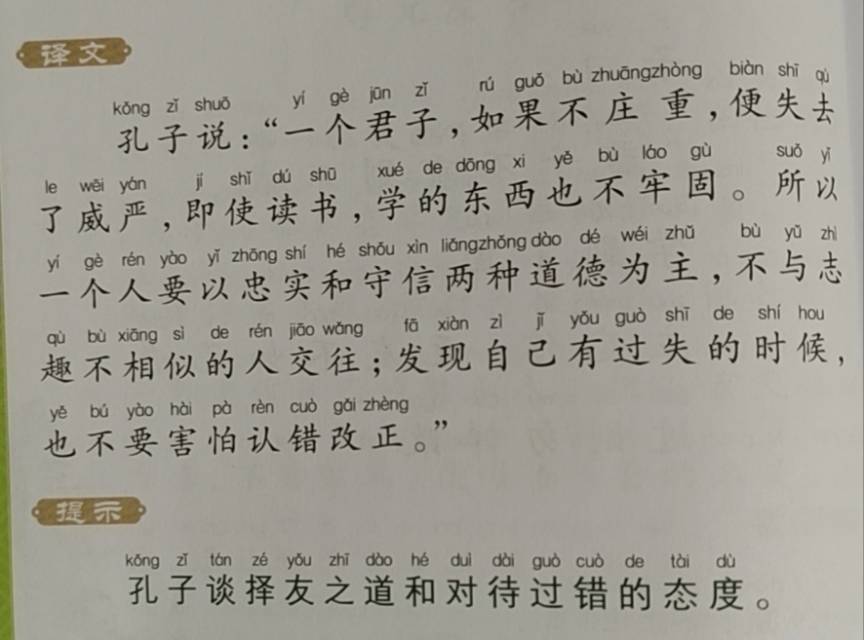 译文
kǒng zǐ shuō yí gè jūn zǐ rú guǒ bù zhuāngzhòng biàn shī qù
孔子说：“一个君子，如果不庄重，便失去
le wēi yán jí shǐ dú shū xué de dōng xi yě bù láo gù suǒ yǐ
了威严，即使读书，学的东西也不牢固。所以
yí gè rén yào yǐ zhōng shí hé shǒu xìn liǎngzhǒng dào dé wéi zhǔ bù yǔ zhì
一个人要以忠实和守信两种道德为主，不与志
qù bù xiāng sì de rén jiāo wǎng fā xiàn zì jǐ yǒu guò shī de shí hou
趣不相似的人交往；发现自己有过失的时候，
yě bú yào hài pà rèn cuò gǎi zhèng
也不要害怕认错改正。”
提示
kǒng zǐ tán zé yǒu zhī dào hé duì dài guò cuò de tài dù
孔子谈择友之道和对待过错的态度。